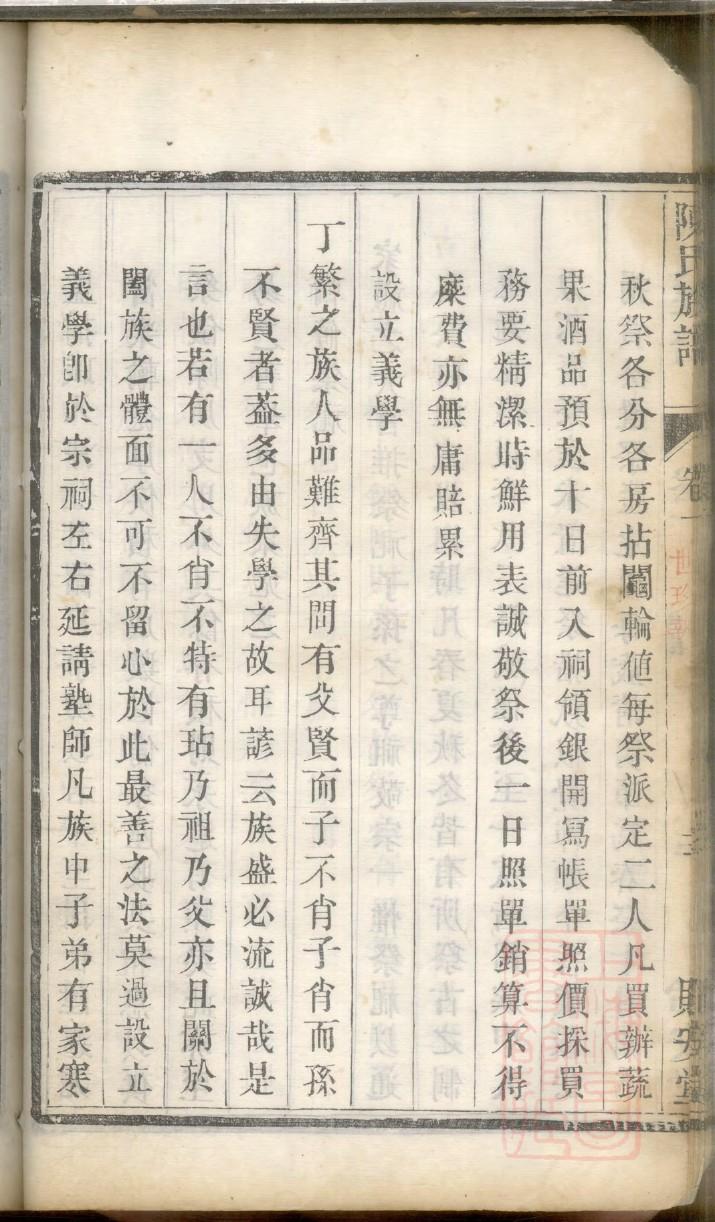 陳氏族譜
卷一
秋祭各分各房拈鬮輪值每祭派定二人凡買辦蔬
果酒品預於十日前入祠領銀開寫帳單照價採買
務要精潔時鮮用表誠敬祭後一日照單銷算不得
糜費亦無庸賠累
設立義學
丁繁之族人品難齊其問有父賢而子不肖子肖而孫
不賢者葢多由失學之故耳諺云族盛必流誠哉是
言也若有一人不肖不特有玷乃祖乃父亦且關於
闔族之體面不可不留心於此最善之法莫過設立
義學卽於宗祠左右延請塾師凡族中子弟有家寒